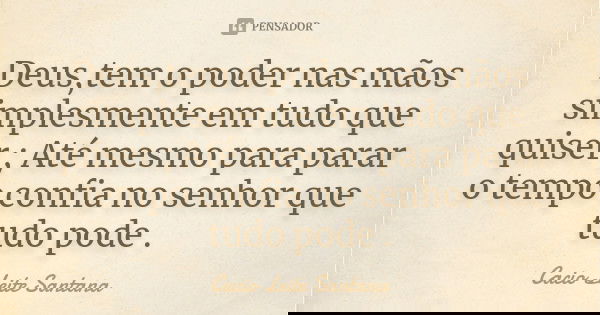 PENSADOR
Deus,tem o poder nas mãos
simplesmente em tudo que
quiser ; Até mesmo para parar
o tempo confia no senhor que
tudo pode .
Cacio Leite Santana